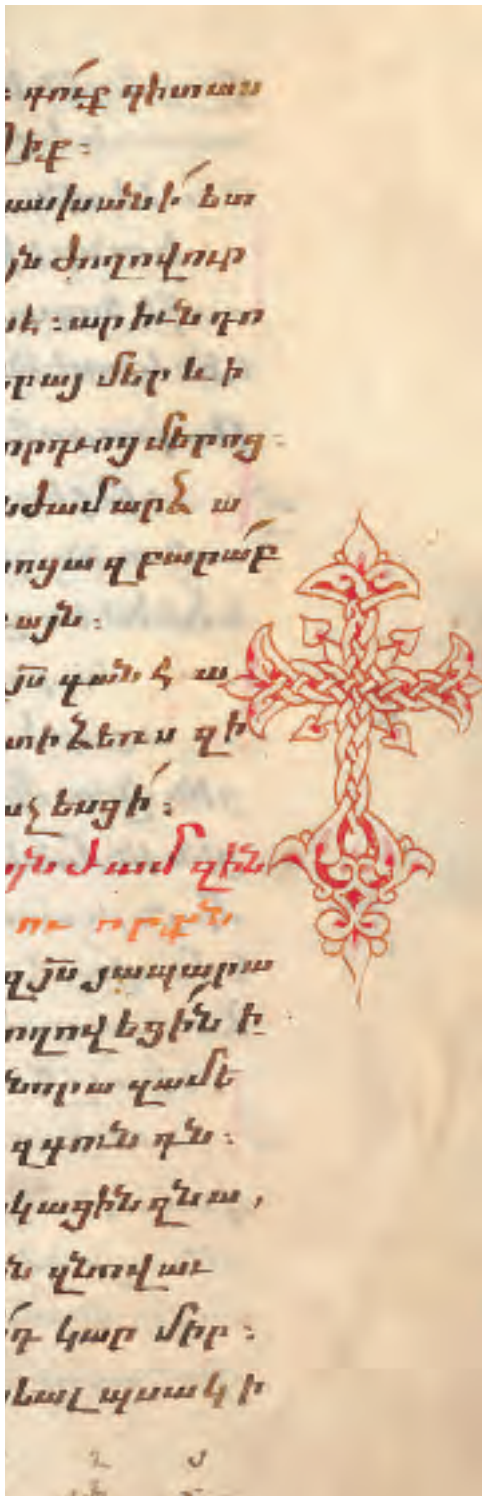 ։ դուք գիտաս
ջիք ։
ասխանի ետ
յն ժողովուր
սէ ։ արիւն դո
երայ մեր և ի
որդւոց մերոց ։
նժամ արձ ա
ոցա զբարաբ
այն ։
յս գան հ ա
տի ձեռս զի
աչեսցի ։
յն ժամ զին
ու որքն
զյս յապարա
ողովեցին ի
նորա զամե
զգունդն ։
կացին զնա ,
ն զնովաւ
դ կար միր ։
եալ պսակ ի